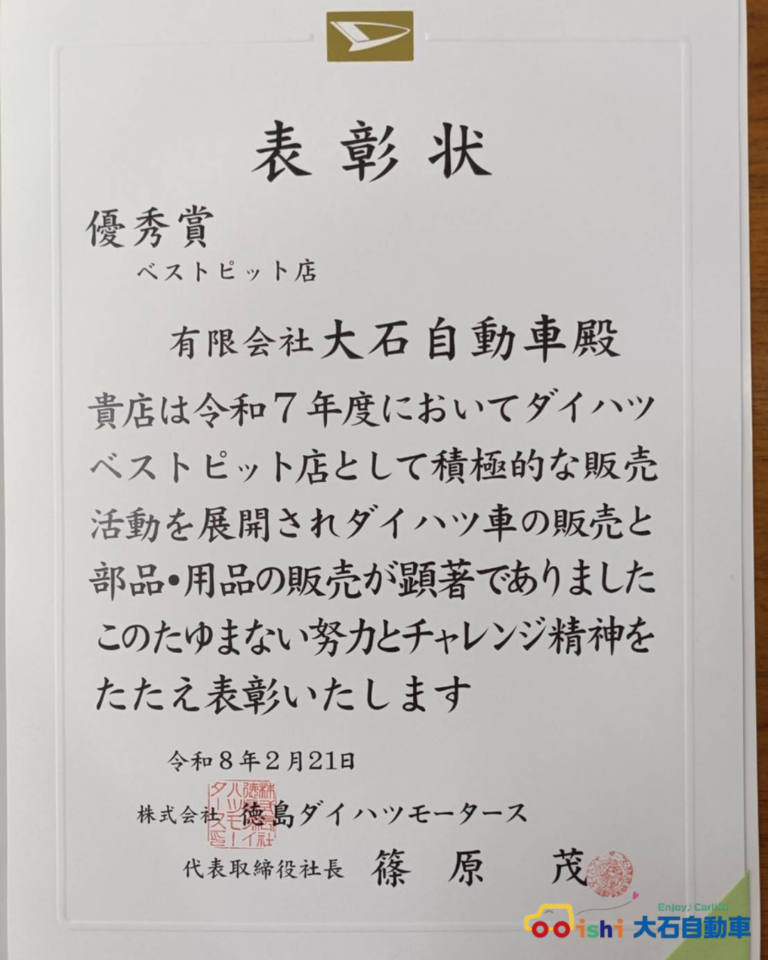 表彰状
優秀賞
ベストピット店
有限会社大石自動車殿
貴店は令和7年度においてダイハツ
ベストピット店として積極的な販売
活動を展開されダイハツ車の販売と
部品•用品の販売が顕著でありました
このたゆまない努力とチャレンジ精神を
たたえ表彰いたします
令和8年2月21日
株式会社 徳島ダイハツモータース
代表取締役社長 篠原 茂
Enjoy! Carlife
ooishi 大石自動車